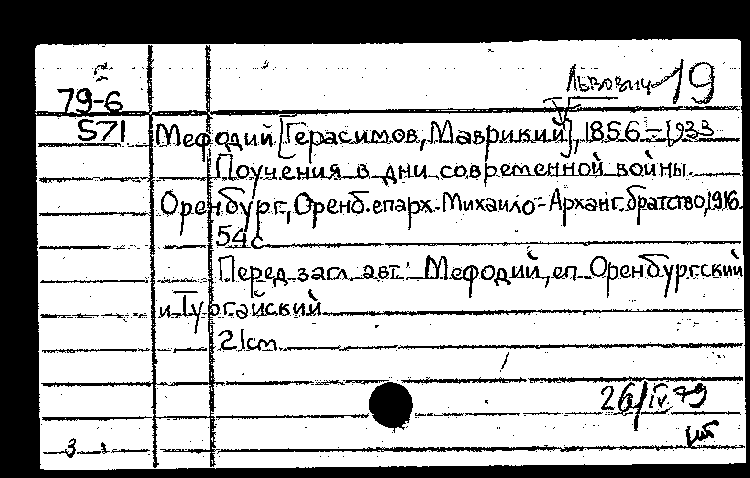 Львович 19
79-6
571 Мефодий [Герасимов, Маврикий], 1856-1933
Поучения в дни современной войны.
Оренбург, Оренб. епарх. Михаило-Арханг. братство, 1916.
54 с
Перед загл. авт.: Мефодий, еп. Оренбургский
и Тургайский
21cm
26/IV 79
3